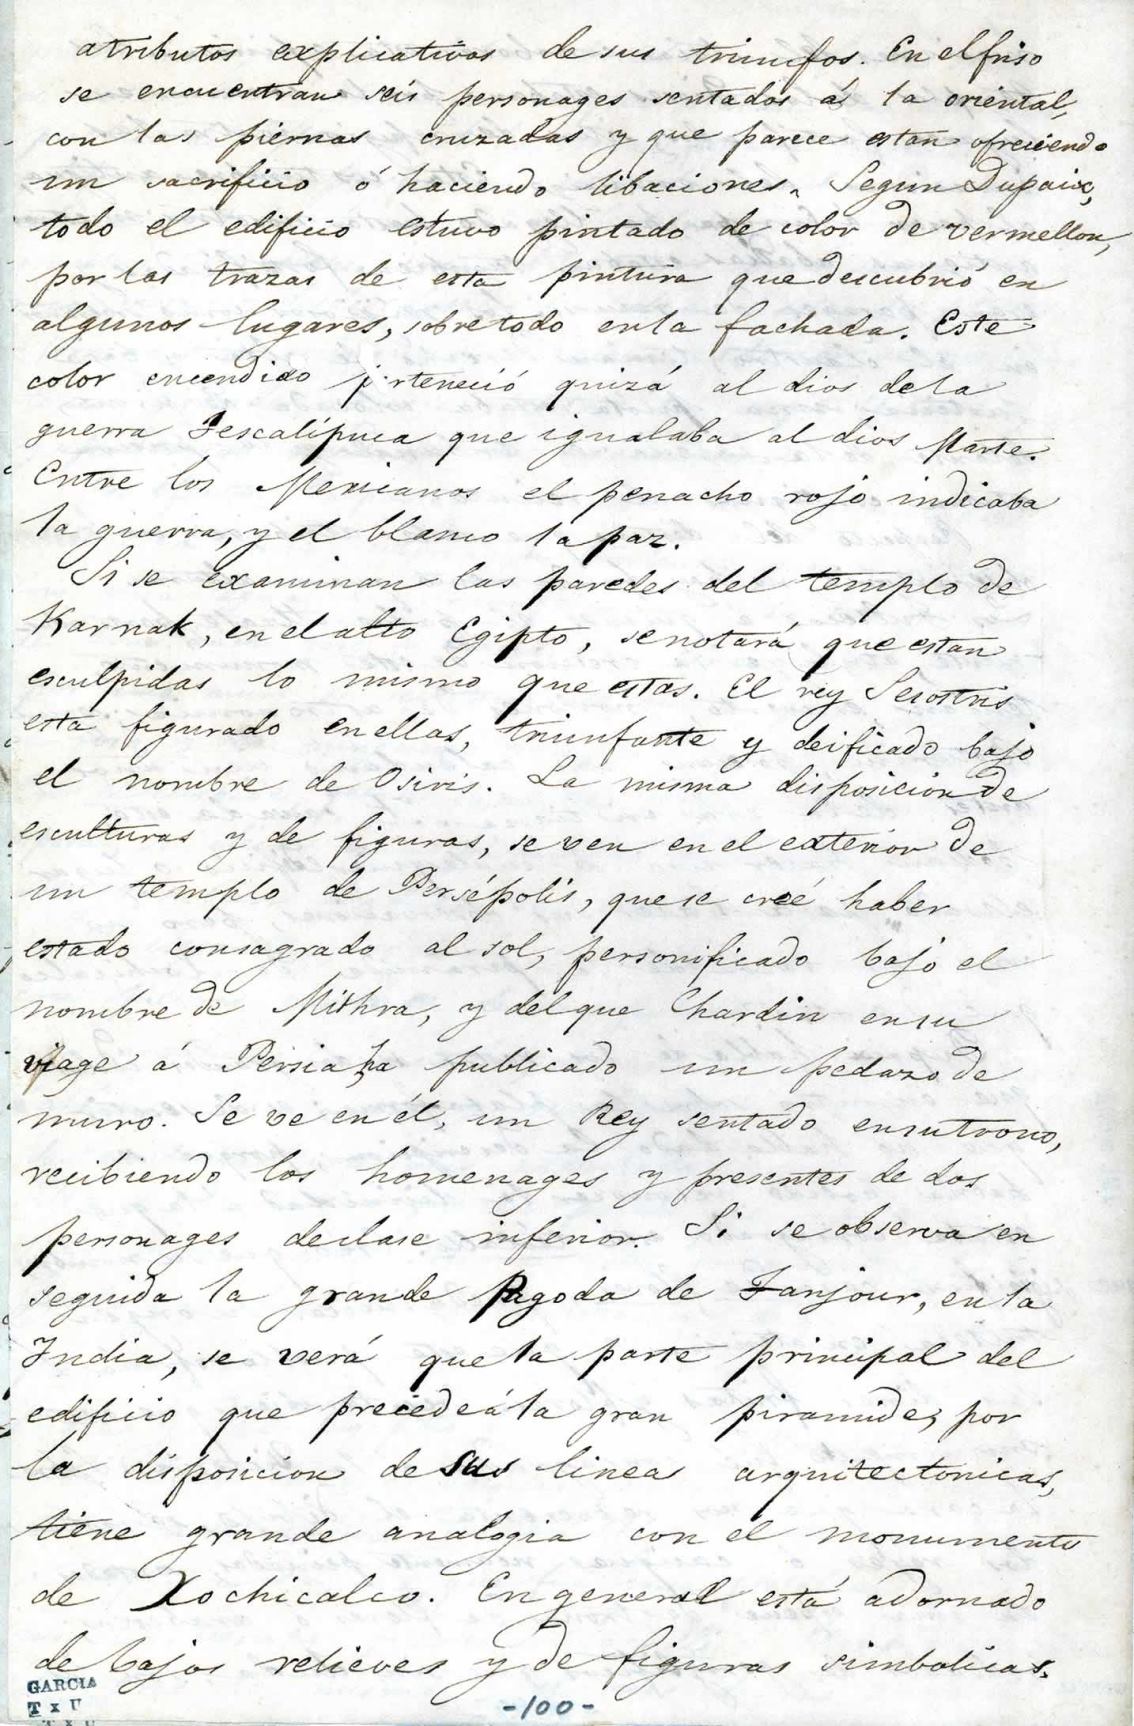 atributos explicativos de sus triunfos. En el friso
se encuentran seis personages sentados á la oriental,
con las piernas cruzadas y que parece estan ofreciendo
un sacrificio ó haciendo libaciones. Segun Dupaix,
todo el edificio estuvo pintado de color de vermellon,
por las trazas de esta pintura que descubrió en
algunos lugares, sobre todo en la fachada. Este
color encendido perteneció quizá al dios de la
guerra Tescalípuca que igualaba al dios Marte.
Entre los Mexicanos el penacho rojo indicaba
la guerra, y el blanco la paz.
Si se examinan las paredes del templo de
Karnak, en el alto Egipto, se notará que estan
esculpidas lo mismo que estas. El rey Sesostris
esta figurado en ellas, triunfante y deificado bajo
el nombre de Osiris. La misma disposicion de
esculturas y de figuras, se ven en el exterior de
un templo de Persépolis, que se creé haber
estado consagrado al sol, personificado bajo el
nombre de Mithra, y del que Chardin en su
viage á Persia, ha publicado un pedazo de
muro. Se ve en él, un Rey sentado en su trono,
recibiendo los homenages y presentes de dos
personages de clase inferior. Si se observa en
seguida la grande Pagoda de Tanjour, en la
India, se verá que la parte principal del
edificio que precede á la gran piramide, por
la disposicion de sus lineas arquitectonicas,
tiene grande analogia con el monumento
de Xochicalco. En general está adornado
de bajos relieves y de figuras simbolicas.
GARCIA
T x U
-100-